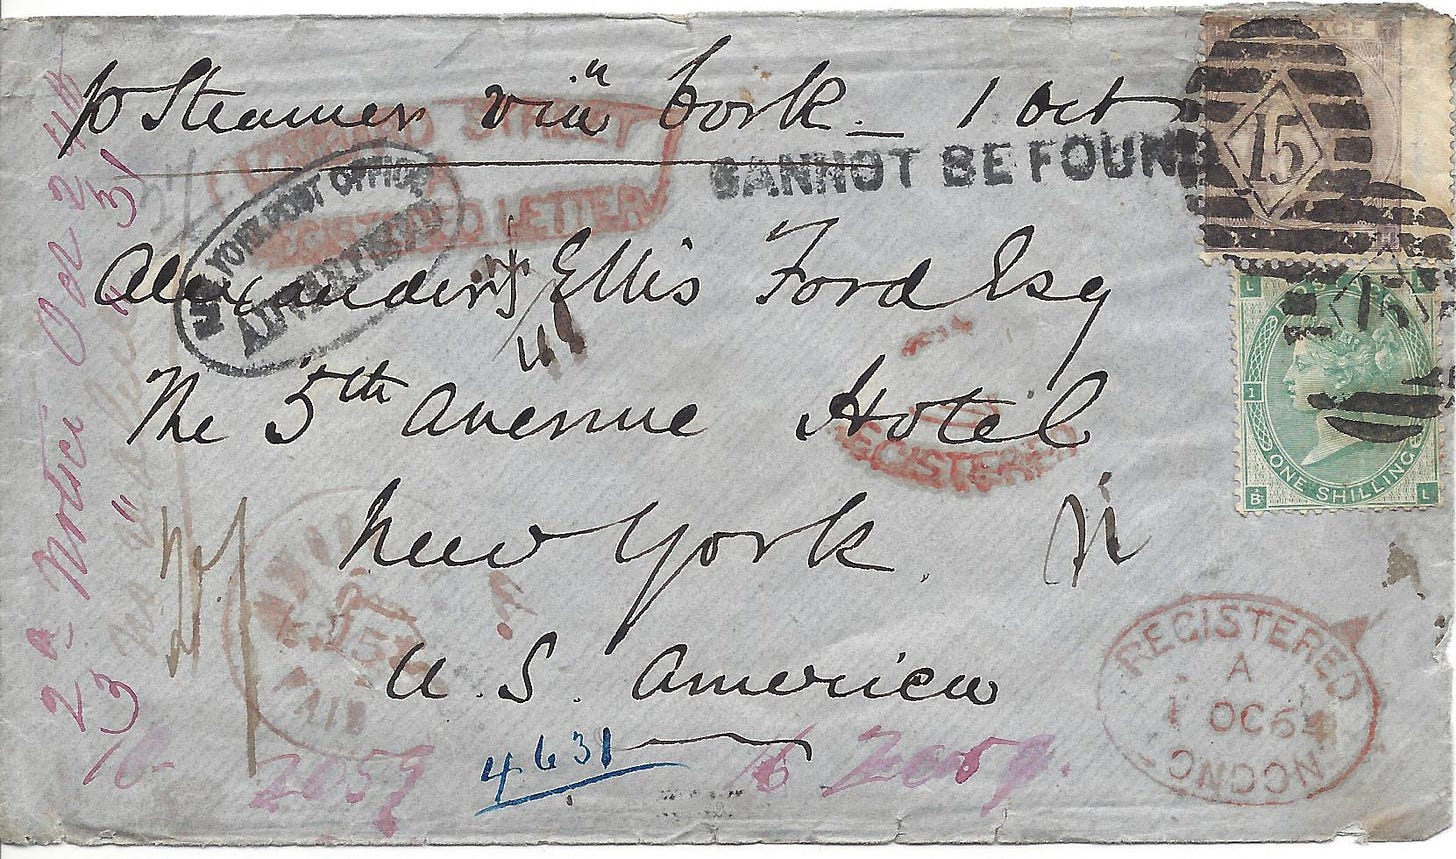 p Steamer via Cork _ 1 Oct
LOMBARD STREET
REGISTERED LETTER
CANNOT BE FOUND
NEW YORK POST OFFICE
ADVERTISED
15
Alexander Ellis Ford Esq
The 5th Avenue Hotel
New York
U. S. America
REGISTERED
ONE SHILLING
L
1
B L
REGISTERED
A
1 OC 64
LONDON
15
PAID
2d Notice Oct 24th
3 " " " 31
4631
16 2059
16 2059.